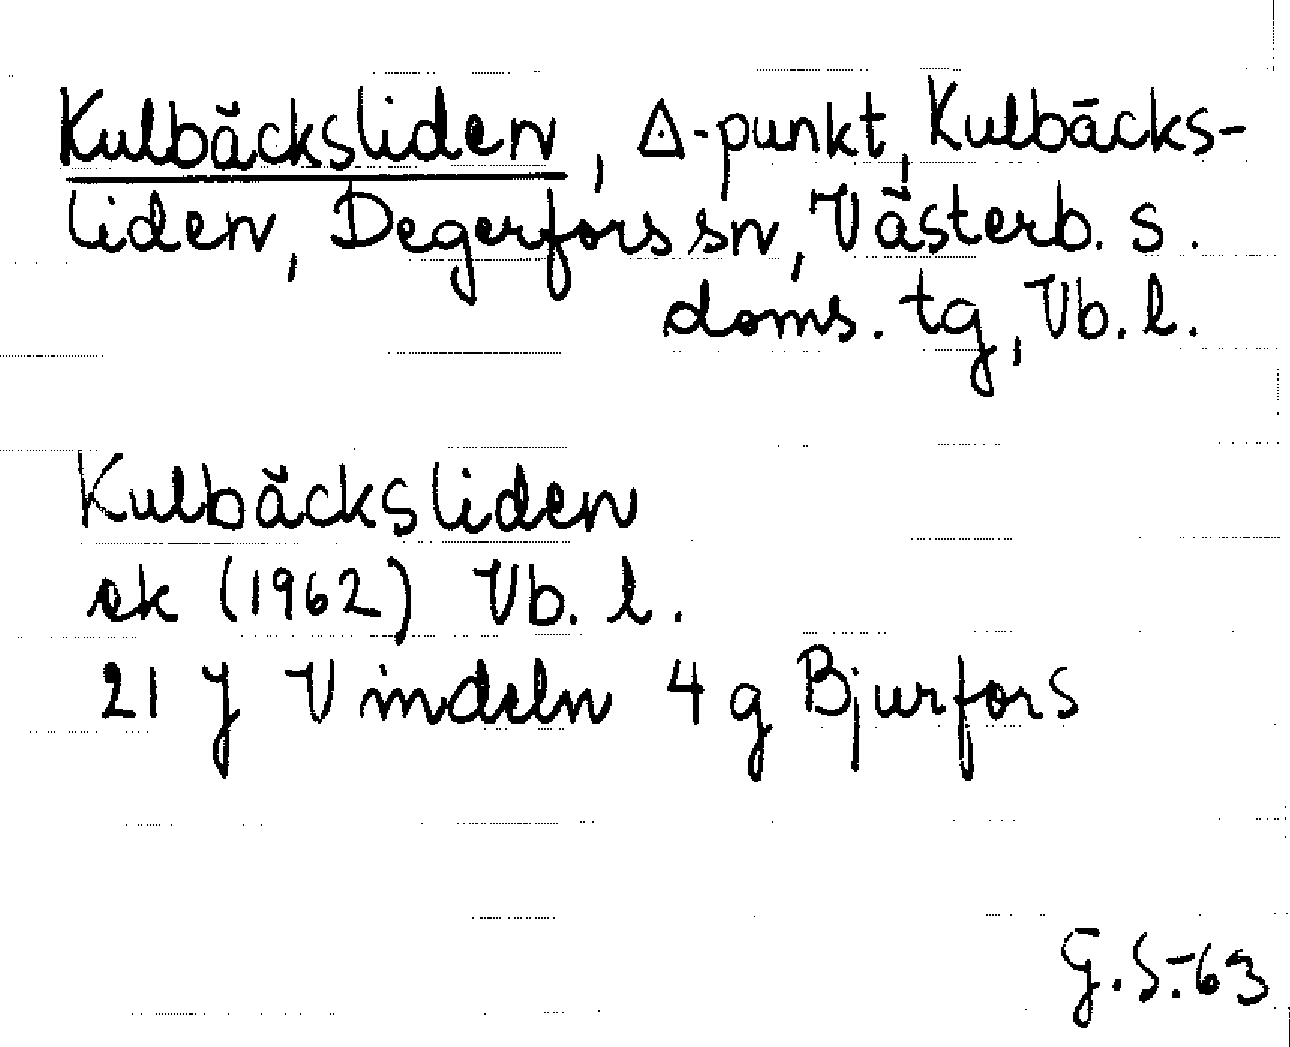 Kulbäcksliden, △-punkt, Kulbäcks-
liden, Degerfors sn, Västerb. s.
doms. tg, Vb. l.
Kulbäcksliden
ek (1962) Vb. l.
21 J Vindeln 4 g Bjurfors
G.S.-63